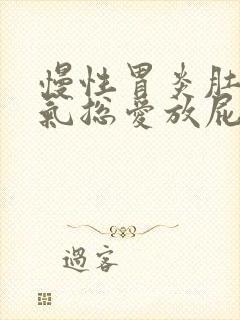 慢性胃炎肚
氣総愛放屁
過客